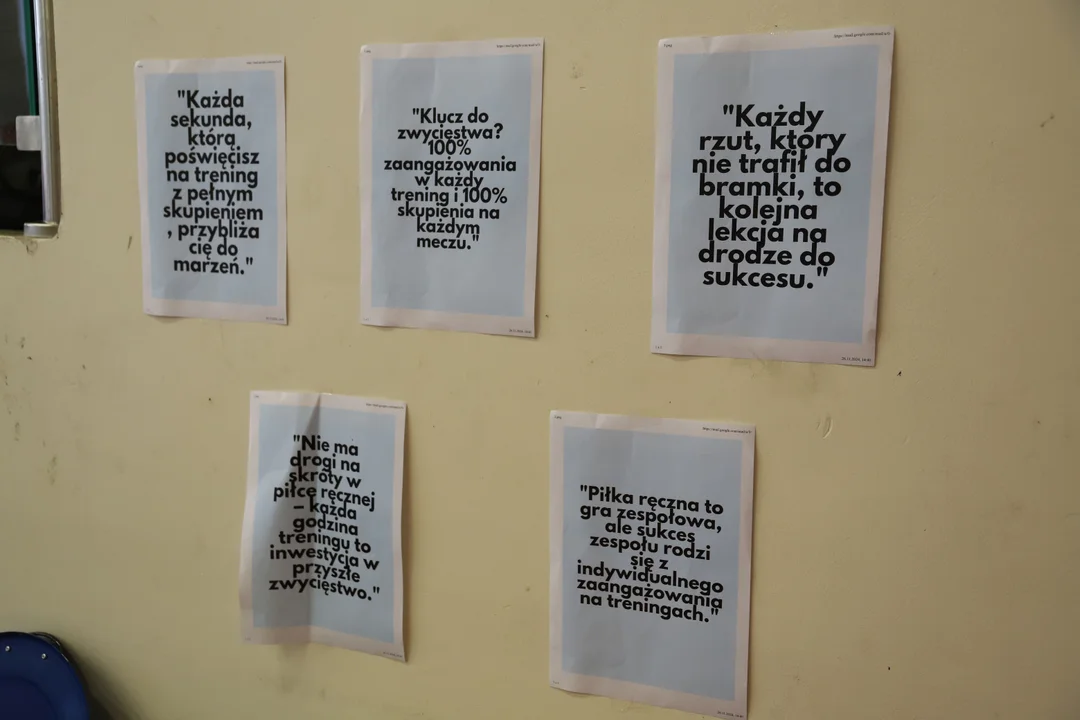 "Każda
sekunda,
którą
poświęcisz
na trening
z pełnym
skupieniem
, przybliża
cię do
marzeń."
"Klucz do
zwycięstwa?
100%
zaangażowania
w każdy
trening i 100%
skupienia na
każdym
meczu."
"Każdy
rzut, który
nie trafił do
bramki, to
kolejna
lekcja na
drodze do
sukcesu."
"Nie ma
drogi na
skróty w
piłce ręcznej
– każda
godzina
treningu to
inwestycja w
przyszłe
zwycięstwo."
"Piłka ręczna to
gra zespołowa,
ale sukces
zespołu rodzi
się z
indywidualnego
zaangażowania
na treningach."